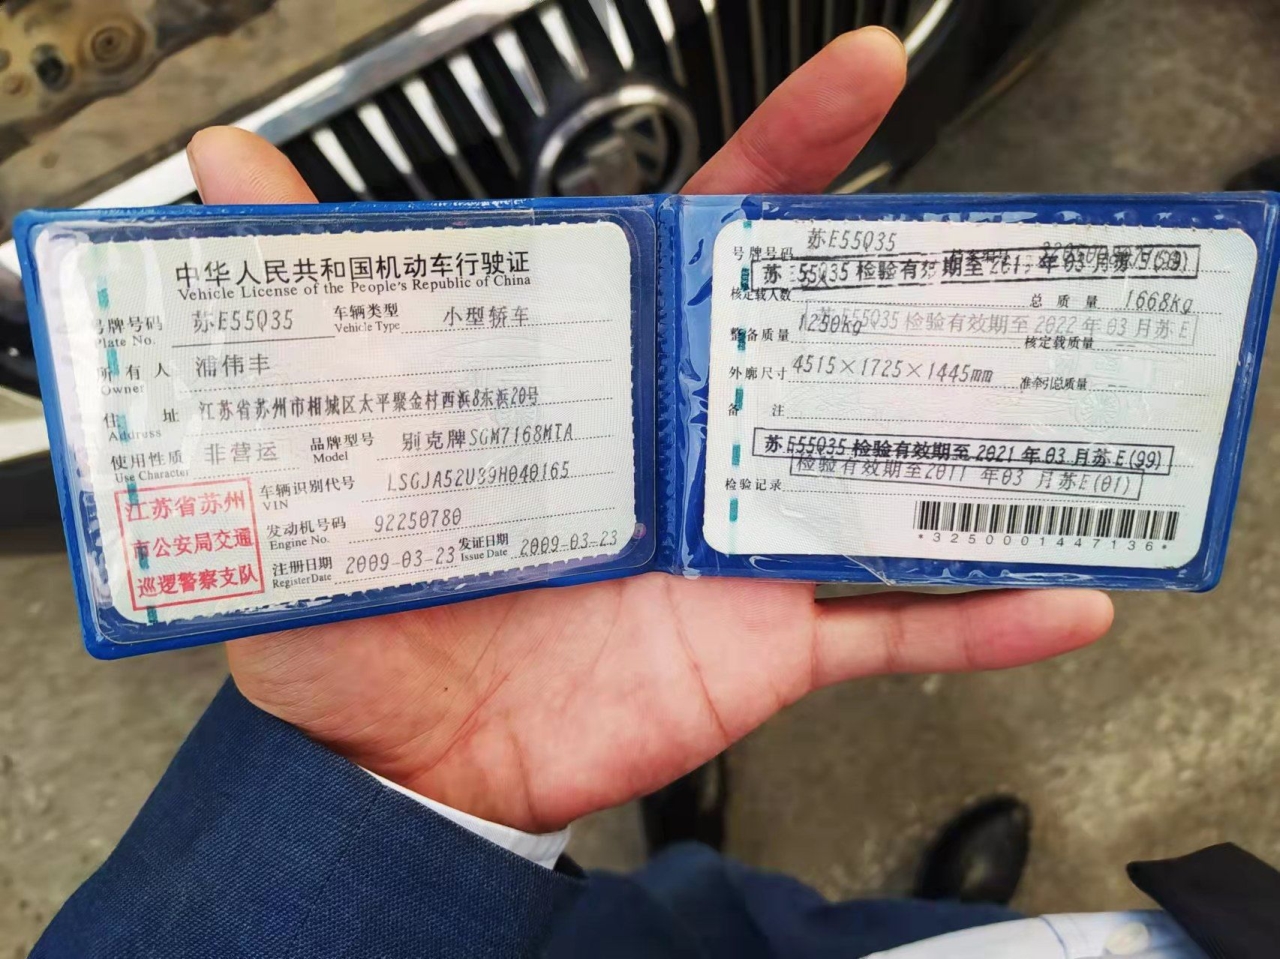 中华人民共和国机动车行驶证
Vehicle License of the People's Republic of China
号牌号码 苏E55Q35 车辆类型 小型轿车
Plate No. Vehicle Type
所有人 浦伟丰
Owner
住址 江苏省苏州市相城区太平聚金村西浜8东浜20号
Address
使用性质 非营运 品牌型号 别克牌SGM7168MTA
Use Character Model
江苏省苏州
市公安局交通
巡逻警察支队
车辆识别代号 LSGJA52U39H040165
VIN
发动机号码 92250780
Engine No.
注册日期 2009-03-23 发证日期 2009-03-23
Register Date Issue Date
号牌号码 苏E55Q35
核定载人数 总质量 1668Kg
整备质量 1250Kg 核定载质量 --
苏E55Q35 检验有效期至 2022年03月苏E
外廓尺寸 4515×1725×1445mm 准牵引总质量 --
备注
苏E55Q35 检验有效期至 2021年03月苏E(99)
检验有效期至2011年03月苏E(01)
检验记录
*3250001447136*